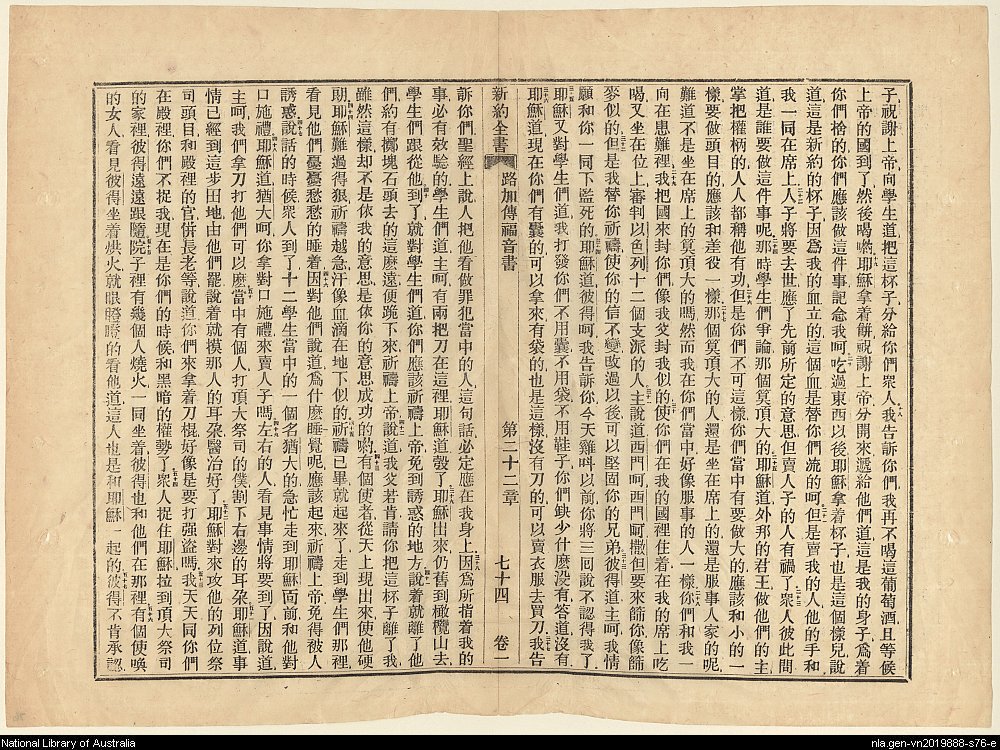 子祝謝上帝向學生道把這杯子分給你們衆人我告訴你們我再不喝這葡萄酒且等候
上帝的國到了然後喝喲耶穌拿着餅祝謝上帝分開來遞給他們道這是我的身子爲着
你們捨的你們應該做這件事記念我呵吃過東西以後耶穌拿着杯子也是這個樣兒說
道這是新約的杯子因爲我的血立的這個血是替你們流的呵但是賣我的人他的手和
我一同在席上人子將要去世應了先前所定的意思但賣人子的人有禍了衆人彼此間
道是誰要做這件事呢那時學生們爭論那個莫頂大的耶穌道外邦的君王做他們的主
掌把權柄的人人都稱他有功但是你們不可這樣你們當中有要做大的應該和小的一
樣要做頭目的應該和差役一樣那個莫頂大的人還是坐在席上的還是服事人家的呢
難道不是坐在席上的莫頂大的嗎然而我在你們當中好像服事的人一樣你們和我一
向在患難裡我把國來封你們像我父封我似的使你們在我的國裡住着在我的席上吃
喝又坐在位上審判以色列十二個支派的人主說道西門呵西門呵撒但要來篩你像篩
麥似的但是我替你祈禱使你的信不變改過以後可以堅固你的兄弟彼得道主呵我情
願和你一同下監死的耶穌道彼得呵我告訴你今天雞呌以前你將三回說不認得我了
耶穌又對學生們道我打發你們不用囊不用袋不用鞋子你們缺少什麼沒有答道沒有
耶穌道現在你們有囊的可以拿來有袋的也是這樣沒有刀的可以賣衣服去買刀我告
新約全書 路加傳福音書 第二十二章 七十四 卷一
訴你們聖經上說人把他看做罪犯當中的人這句話必定應在我身上因爲所指着我的
事必有效驗的學生們道主呵有兩把刀在這裡耶穌道彀了耶穌出來仍舊到橄欖山去
學生們跟從他到了就對學生們道你們應該祈禱上帝免到誘惑的地方說着就離了他
們約有擲塊石頭去的這麼遠便跪下來祈禱上帝說道我父若肯請你把這杯子離了我
雖然這樣却不是依我的意思是依你的意思成功的喲有個使者從天上現出來使他硬
朗耶穌難過得狠祈禱越急汗像血滴在地下似的祈禱已畢就起來了走到學生們那裡
看見他們憂憂愁愁的睡着因對他們說道爲什麼睡覺呢應該起來祈禱上帝免得被人
誘惑說話的時候衆人到了十二學生當中的一個名猶大的急忙走到耶穌面前和他對
口施禮耶穌道猶大呵你拿對口施禮來賣人子嗎左右的人看見事情將要到了因說道
主呵我們拿刀打他們可以麼當中有個人打頂大祭司的僕割下右邊的耳朶耶穌道事
情已經到這步田地由他們罷說着就摸那人的耳朶醫治好了耶穌對來攻他的列位祭
司頭目和殿裡的官併長老等說道你們來拿着刀棍好像是要打强盜嗎我天天同你們
在殿裡你們不捉我現在是你們的時候和黑暗的權勢了衆人捉住耶穌拉到頂大祭司
的家裡彼得遠遠跟隨院子裡有幾個人燒火一同坐着彼得也和他們在那裡有個使喚
的女人看見彼得坐着烘火就眼瞪瞪的看他道這人也是和耶穌一起的彼得不肯承認
National Library of Australia
nla.gen-vn2019888-s76-e